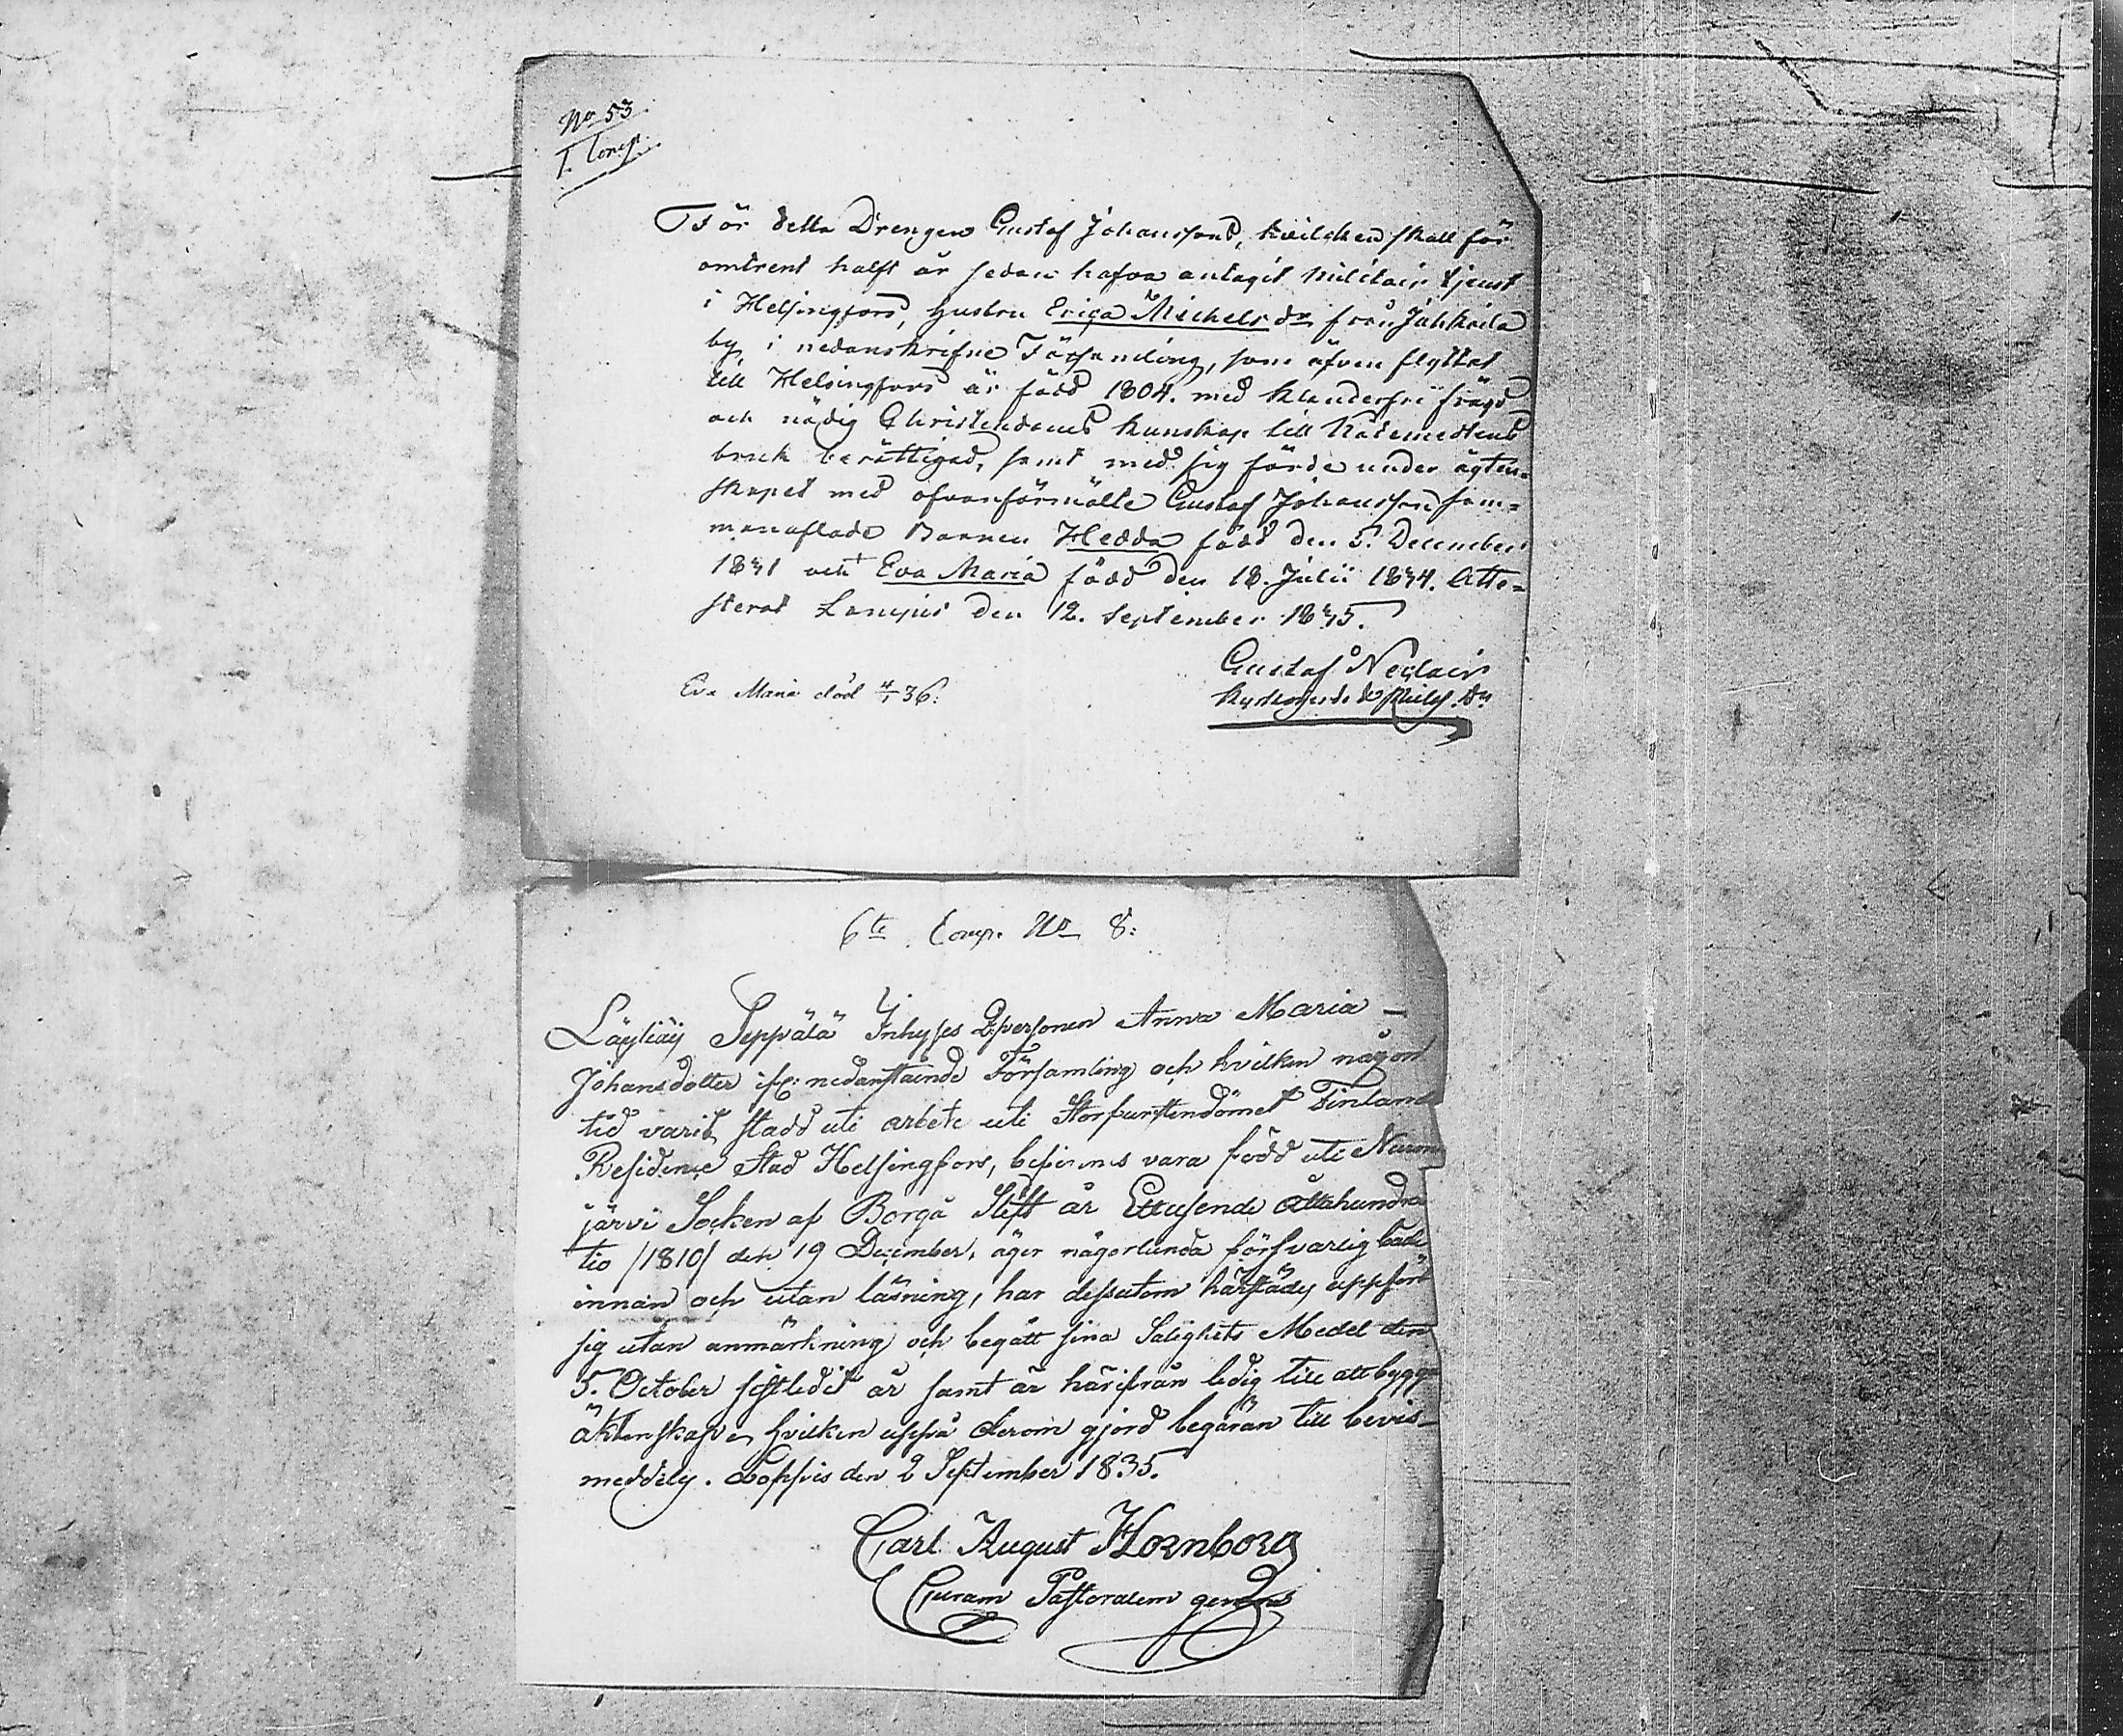 No 53
I. Comp.
För detta Drengen Gustaf Johansson, hvilcken skall för
omtrent halft år sedan hafva antagit Militair tjenst
i Helsingfors, hustru Erica Michelsdr från Jahkoila
by, i nedanskrifne Församling, som äfven flyttat
till Helsingfors är född 1804. med klanderfri frägd
och nödig Christendoms kunskap till Nådemedlens
bruk berättigad, samt med sig förde under ägten-
skapet med ofvanförmälte Gustaf Johansson sam-
manaflade Barnen Hedda född den 5. December
1831 och + Eva Maria född den 18. Julii 1834. Atte-
sterat Lampis den 12. September 1835.
Gustaf
Eva Maria död 4/1 36.
6te Comp. No 8:
Läyliäis Seppälä Inhyses Qvpersonen Anna Maria
Johansdotter ifr: nedanstående Församling och hvilken någon
tid varit stadd uti arbete uti Storfurstendömet Finlands
Residence Stad Helsingfors, befinnes vara född uti Nurmi
järvi Socken af Borgå Stift år Ettusende åttahundra
tio /1810/ den 19 December, äger någorlunda försvarlig både
innan och utan läsning, har dessutom härstädes uppfört
sig utan anmärkning och begått sina Salighets Medel den
5. October sistledit år samt är härifrån ledig till att bygga
äktenskap, hvilken uppå derom gjord begäran till bevis
meddelas. Loppis den 2 September 1835.
Carl August Hornborg
Curam Pastoralem gerens